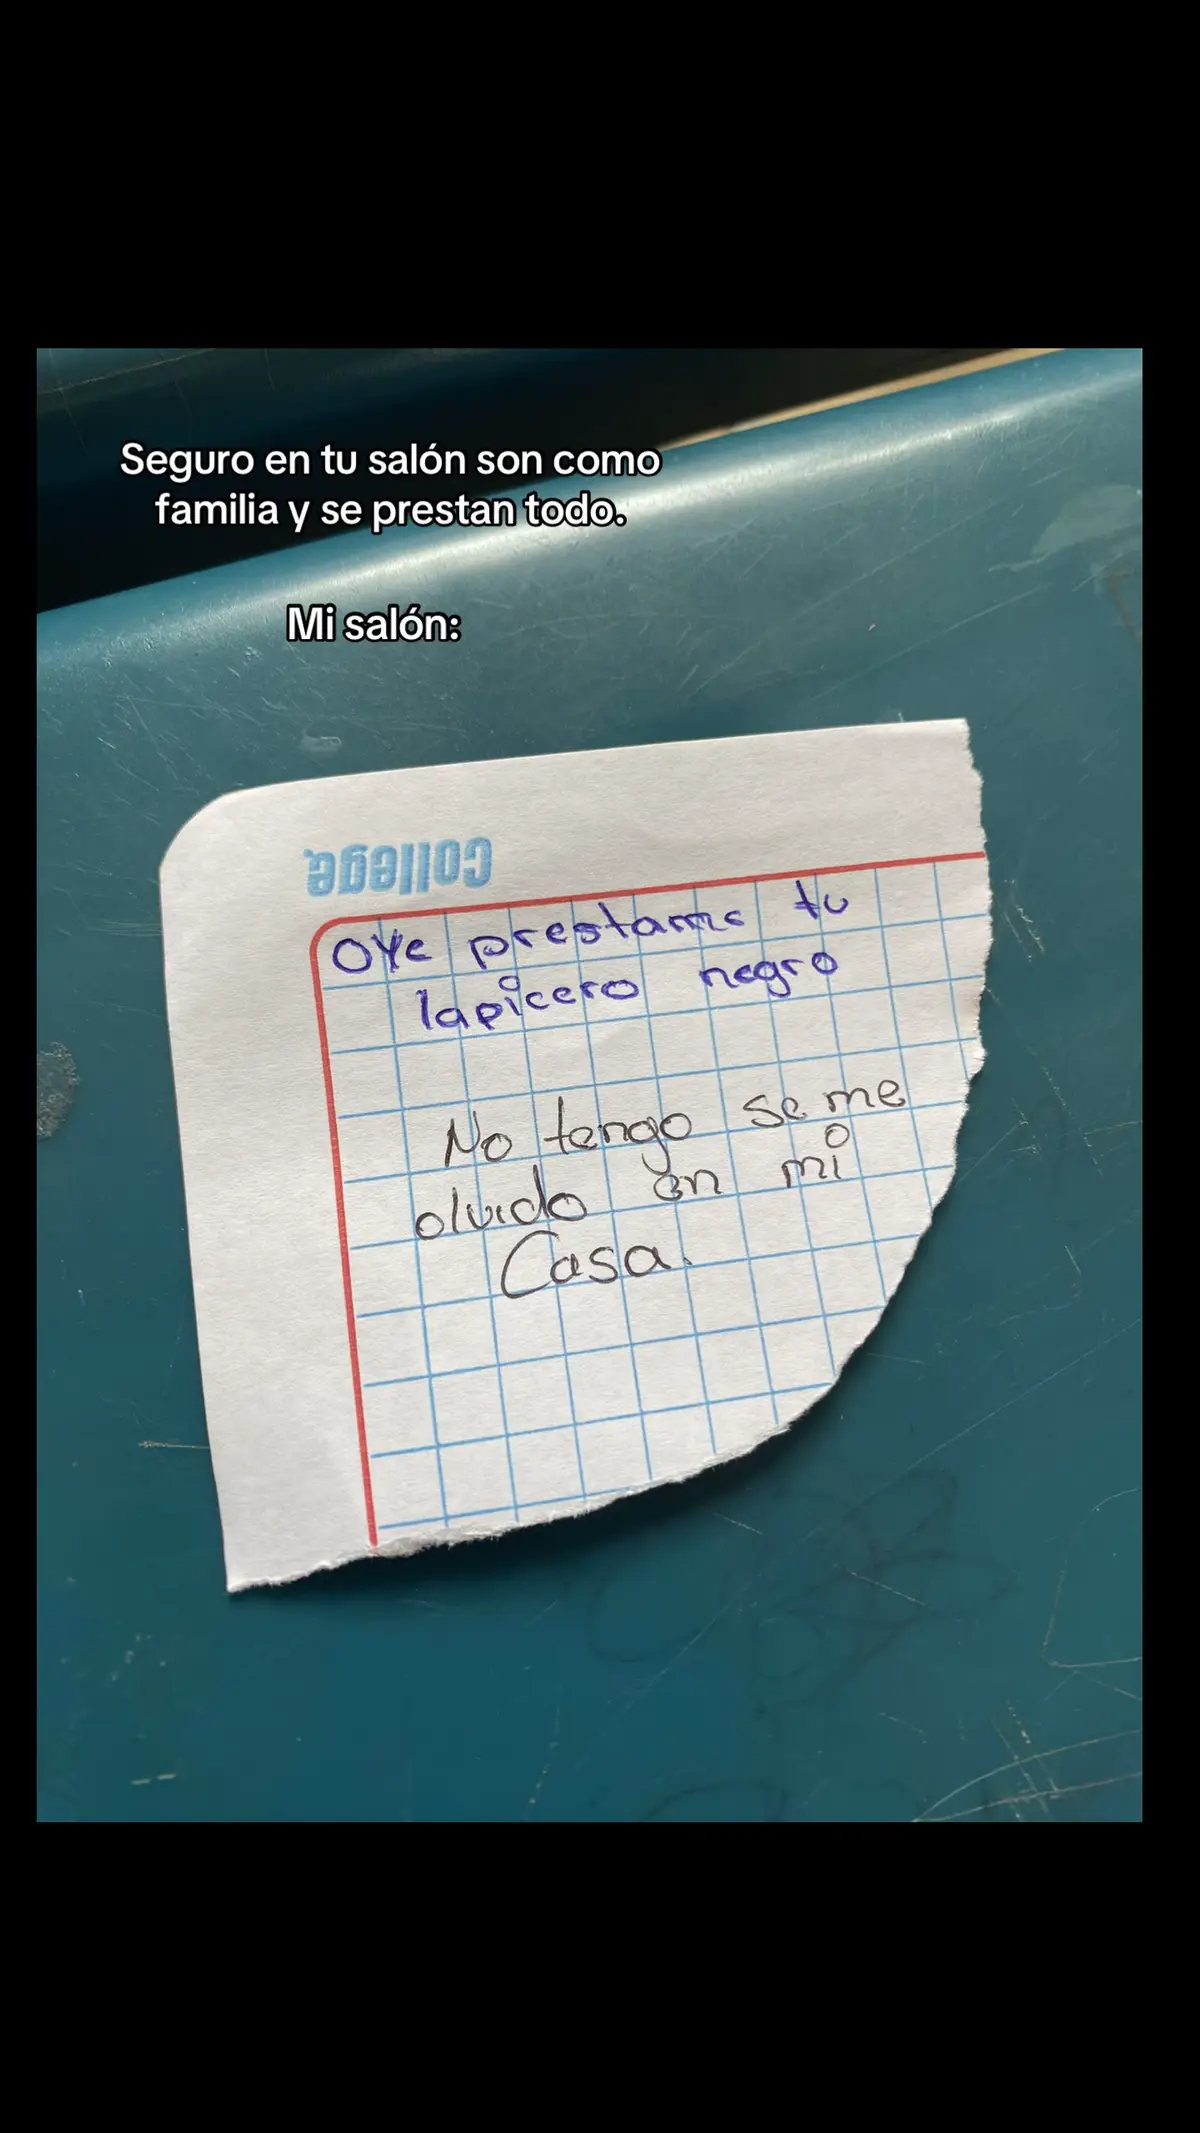 Seguro en tu salón son como
familia y se prestan todo.
Mi salón:
College
Oye prestame tu
lapicero negro
No tengo se me
olvido en mi
Casa.